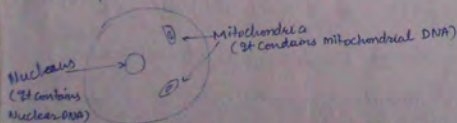 Mitochondria
(It Contains mitochondrial DNA)
Nucleus
(It contains
Nuclear DNA)